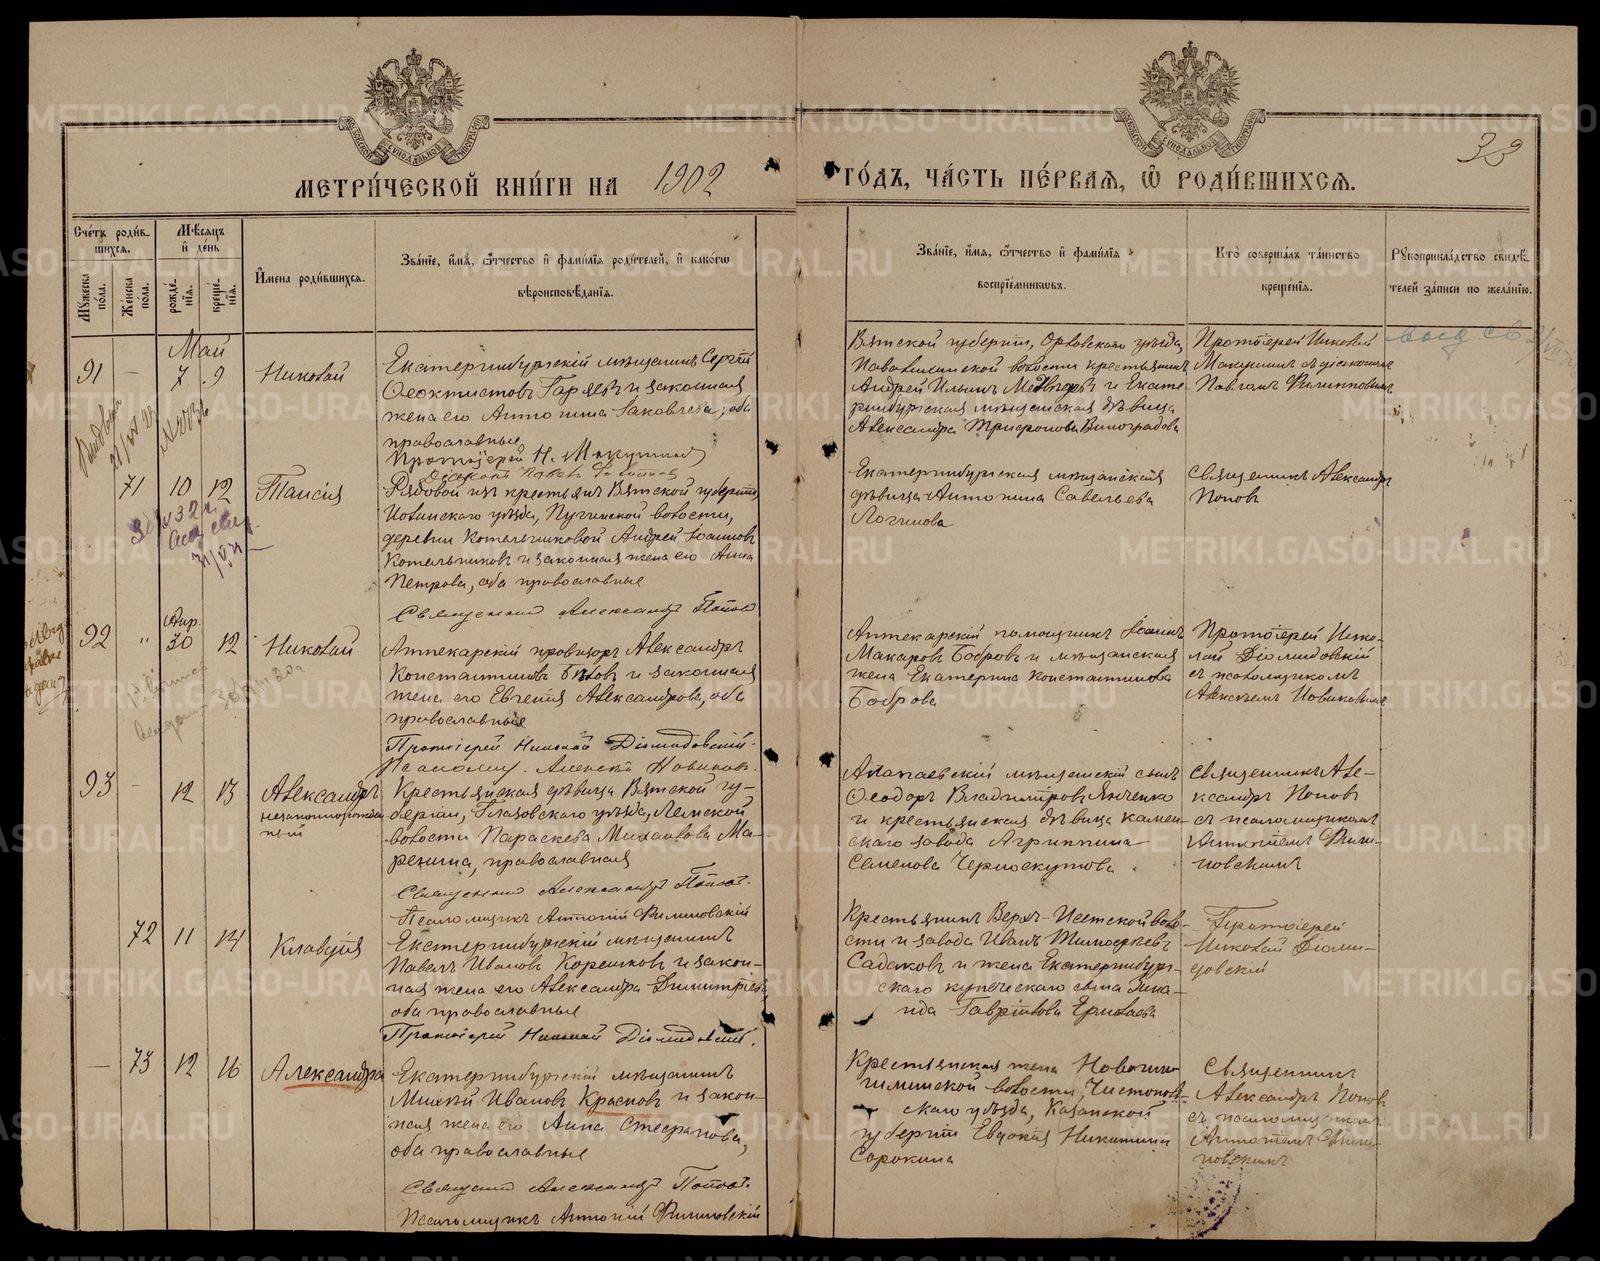 МЕТРИ́ЧЕСКОЙ КНИ́ГИ НА 1902
ГО́ДЪ, ЧА́СТЬ ПЕ́РВАЯ, Ѡ РОДИ́ВШИХСЯ.
33
Сче́тъ роди́в-
шихся.
Мѣ́сяцъ
и҆ де́нь
Мꙋ́жеска
по́ла.
Же́нска
по́ла.
рожде́-
нїѧ.
креще́-
нїѧ.
И҆мена роди́вшихся.
Зва́нїе, и҆́мѧ, ѻ҆́тчество и҆ фами́лїѧ роди́телей, и҆ како́гѡ
вѣроисповѣ́данїѧ.
Зва́нїе, и҆́мѧ, ѻ҆́тчество и҆ фами́лїѧ
воспрїе́мникѡвъ.
Кто̀ соверша́лъ та́инство
креще́нїѧ.
Рꙋкоприкла́дство свидѣ́-
телей за́писи по жела́нїю.
Май
91 — 7 9 Николай
Екатеринбургскій мѣщанинъ Сергій
Ѳеоктистовъ и законная
жена его Антонина Іаковлева; оба
православные
Протоіерей Н.
Вятской губерніи, Орловскаго уѣзда,
волости крестьянинъ
Андрей Ильинъ и Екате-
ринбургская мѣщанская дѣвица
Александра Трифонова Виноградова
Протоіерей Николай
съ діакономъ
Павломъ
71 10 12 Таисія
Рядовой изъ крестьянъ Вятской губерніи,
уѣзда, волости,
деревни Котельниковой Андрей Іоанновъ
Котельниковъ и законная жена его Анна
Петрова, оба православные
Священникъ Александръ Поповъ
Екатеринбургская мѣщанская
дѣвица Антонина Савельева
Логинова
Священникъ Александръ
Поповъ
92 " Апр. 30 12 Николай
Аптекарскій провизоръ Александръ
Константиновъ и законная
жена его Евгенія Александрова, оба
православные
Протоіерей Николай Діомидовскій
Псаломщ. Алексѣй Новиковъ.
Аптекарскій помощникъ Іоаннъ
Макаровъ Бобровъ и мѣщанская
жена Екатерина Константинова
Боброва
Протоіерей Нико-
лай Діомидовскій
съ псаломщикомъ
Алексѣемъ Новиковымъ
93 — 12 13 Александръ
незаконнорожден-
ный
Крестьянская дѣвица Вятской гу-
берніи, Глазовскаго уѣзда, Лемской
волости Параскева Михаилова Ма-
ренина, православная
Священникъ Александръ Поповъ.
Псаломщикъ Антоній Филиповскій
Алапаевскій мѣщанскій сынъ
Ѳеодоръ Владиміровъ Янченко
и крестьянская дѣвица Камен-
скаго завода Агриппина
Семенова Черноскутова.
Священникъ Але-
ксандръ Поповъ
съ псаломщикомъ
Антоніемъ Фили-
повскимъ
72 11 14 Клавдія
Екатеринбургскій мѣщанинъ
Павелъ Ивановъ Корешковъ и закон-
ная жена его Александра Димитріева,
оба православные
Протоіерей Николай Діомидовскій.
Крестьянинъ Верхъ-Исетской воло-
сти и завода Иванъ Тимофеевъ
Садаковъ и жена Екатеринбург-
скаго купеческаго сына
Гавріилова
Протоіерей
Николай Діоми-
довскій
— 73 12 16 Александра
Екатеринбургскій мѣщанинъ
Ивановъ Красновъ и закон-
ная жена его Анна Стефанова,
оба православные
Священникъ Александръ Поповъ.
Псаломщикъ Антоній Филиповскій
Крестьянская жена
волости, Чистополь-
скаго уѣзда, Казанской
губерніи Евдокія Никитина
Сорокина
Священникъ
Александръ Поповъ
съ псаломщикомъ
Антоніемъ Фили-
повскимъ
METRIKI.GASO-URAL.RU